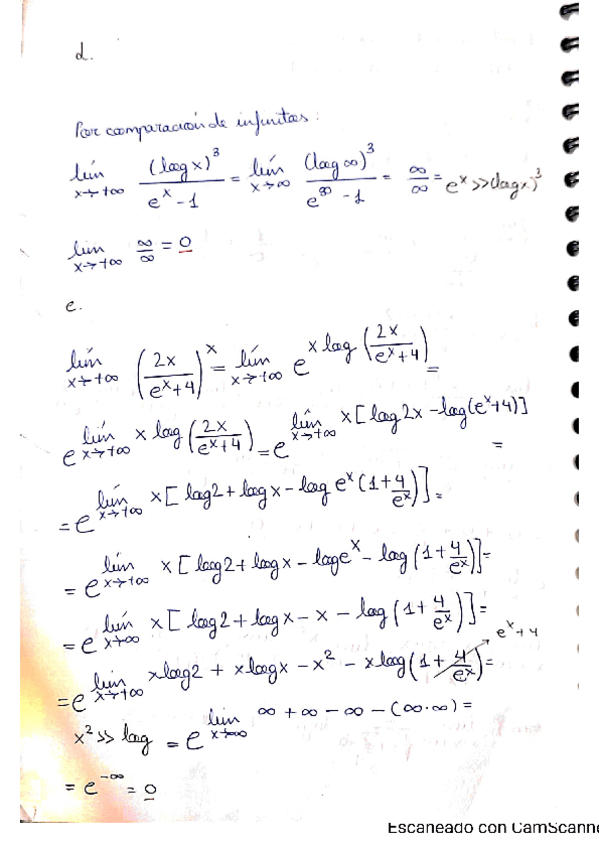 d.
Por comparación de infinitos:
lím x→+∞ (log x)^3 / (e^x - 1) = lím x→∞ (log ∞)^3 / (e^∞ - 1) = ∞/∞ = e^x >> (log x)^3
lím x→+∞ ∞/∞ = 0
e.
lím x→+∞ (2x/(e^x+4))^x = lím x→+∞ e^(x log (2x/(e^x+4))) =
e^(lím x→+∞ x log (2x/(e^x+4))) = e^(lím x→+∞ x[log 2x - log(e^x+4)]) =
= e^(lím x→+∞ x[log 2 + log x - log e^x (1+4/e^x)]) =
= e^(lím x→+∞ x[log 2 + log x - log e^x - log (1+4/e^x)]) =
= e^(lím x→+∞ x[log 2 + log x - x - log (1+4/e^x)]) =
e^x+4
= e^(lím x→+∞ x log 2 + x log x - x^2 - x log (1+4/e^x)) =
x^2 >> log = e^(lím x→+∞ ∞ + ∞ - ∞ - (∞·∞)) =
= e^(-∞) = 0
Escaneado con CamScanne